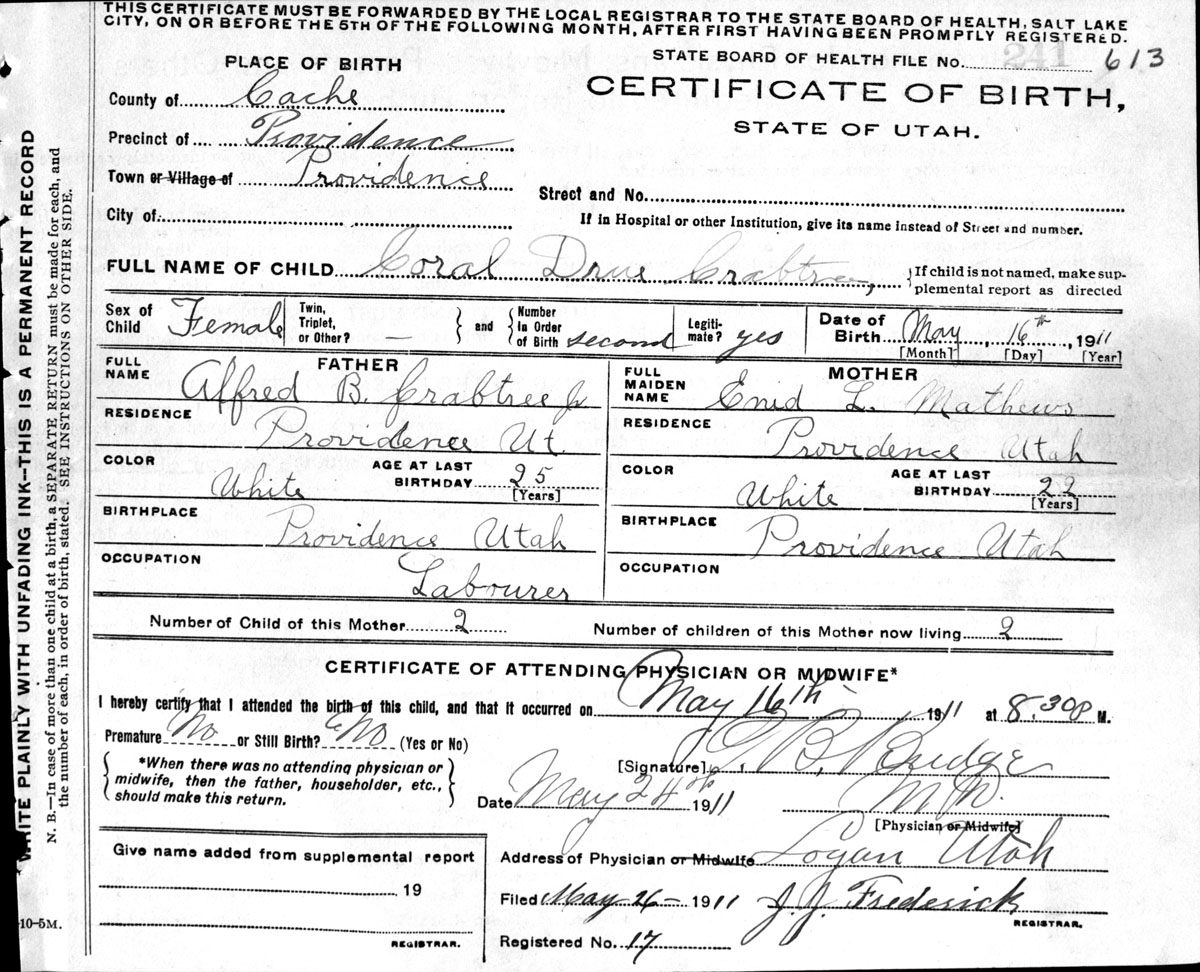 THIS CERTIFICATE MUST BE FORWARDED BY THE LOCAL REGISTRAR TO THE STATE BOARD OF HEALTH, SALT LAKE
CITY, ON OR BEFORE THE 5TH OF THE FOLLOWING MONTH, AFTER FIRST HAVING BEEN PROMPTLY REGISTERED.
STATE BOARD OF HEALTH FILE No. 241 613
PLACE OF BIRTH
CERTIFICATE OF BIRTH,
STATE OF UTAH.
County of Cache
Precinct of Providence
Town or Village of Providence
Street and No.
City of
If in Hospital or other Institution, give its name instead of Street and number.
FULL NAME OF CHILD Coral Drue Crabtree, {If child is not named, make sup-
plemental report as directed
Sex of Child Female Twin, Triplet, or Other? — and Number in Order of Birth second Legiti-mate? yes Date of Birth May 16th, 1911
[Month] [Day] [Year]
FATHER
FULL NAME Alfred B. Crabtree Jr
RESIDENCE Providence Ut.
COLOR White AGE AT LAST BIRTHDAY 25
[Years]
BIRTHPLACE Providence Utah
OCCUPATION Labourer
MOTHER
FULL MAIDEN NAME Enid L. Mathews
RESIDENCE Providence Utah
COLOR White AGE AT LAST BIRTHDAY 22
[Years]
BIRTHPLACE Providence Utah
OCCUPATION
Number of Child of this Mother 2 Number of children of this Mother now living 2
CERTIFICATE OF ATTENDING PHYSICIAN OR MIDWIFE*
I hereby certify that I attended the birth of this child, and that it occurred on May 16th 1911 at 8.30P M.
Premature No or Still Birth? No (Yes or No)
*When there was no attending physician or
midwife, then the father, householder, etc.,
should make this return.
[Signature] B. Budge
Date May 24th 1911 M.D.
[Physician or Midwife]
Address of Physician or Midwife Logan Utah
Give name added from supplemental report
19
REGISTRAR.
Filed May 26 - 1911 J. J. Frederick
REGISTRAR.
Registered No. 17
WRITE PLAINLY WITH UNFADING INK--THIS IS A PERMANENT RECORD
N. B.—In case of more than one child at a birth, a SEPARATE RETURN must be made for each, and
the number of each, in order of birth, stated. SEE INSTRUCTIONS ON OTHER SIDE.
-10-5M.